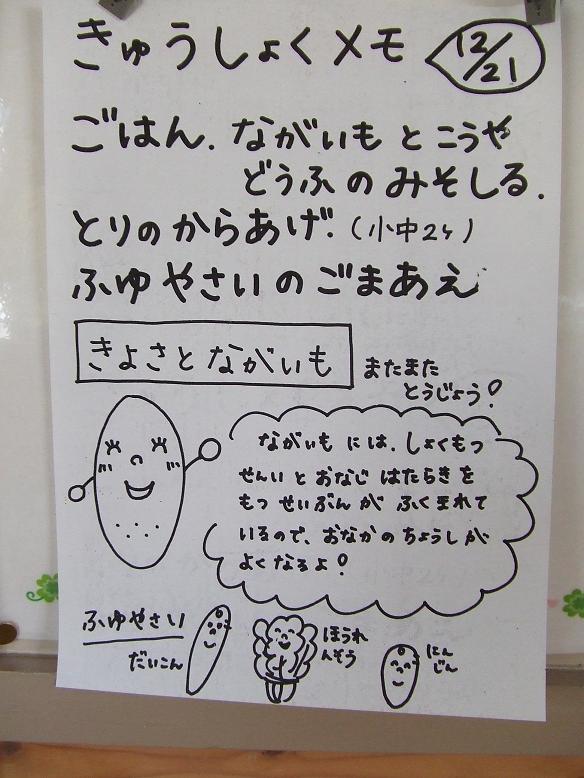 きゅうしょくメモ 12/21
ごはん.ながいもとこうや
どうふのみそしる.
とりのからあげ.(小中2ヶ)
ふゆやさいのごまあえ
きよさとながいも
またまた
とうじょう!
ながいもには.しょくもつ
せんいとおなじはたらきを
もつせいぶんがふくまれて
いるので、おなかのちょうしが
よくなるよ!
ふゆやさい
だいこん
ほうれ
んそう
にん
じん